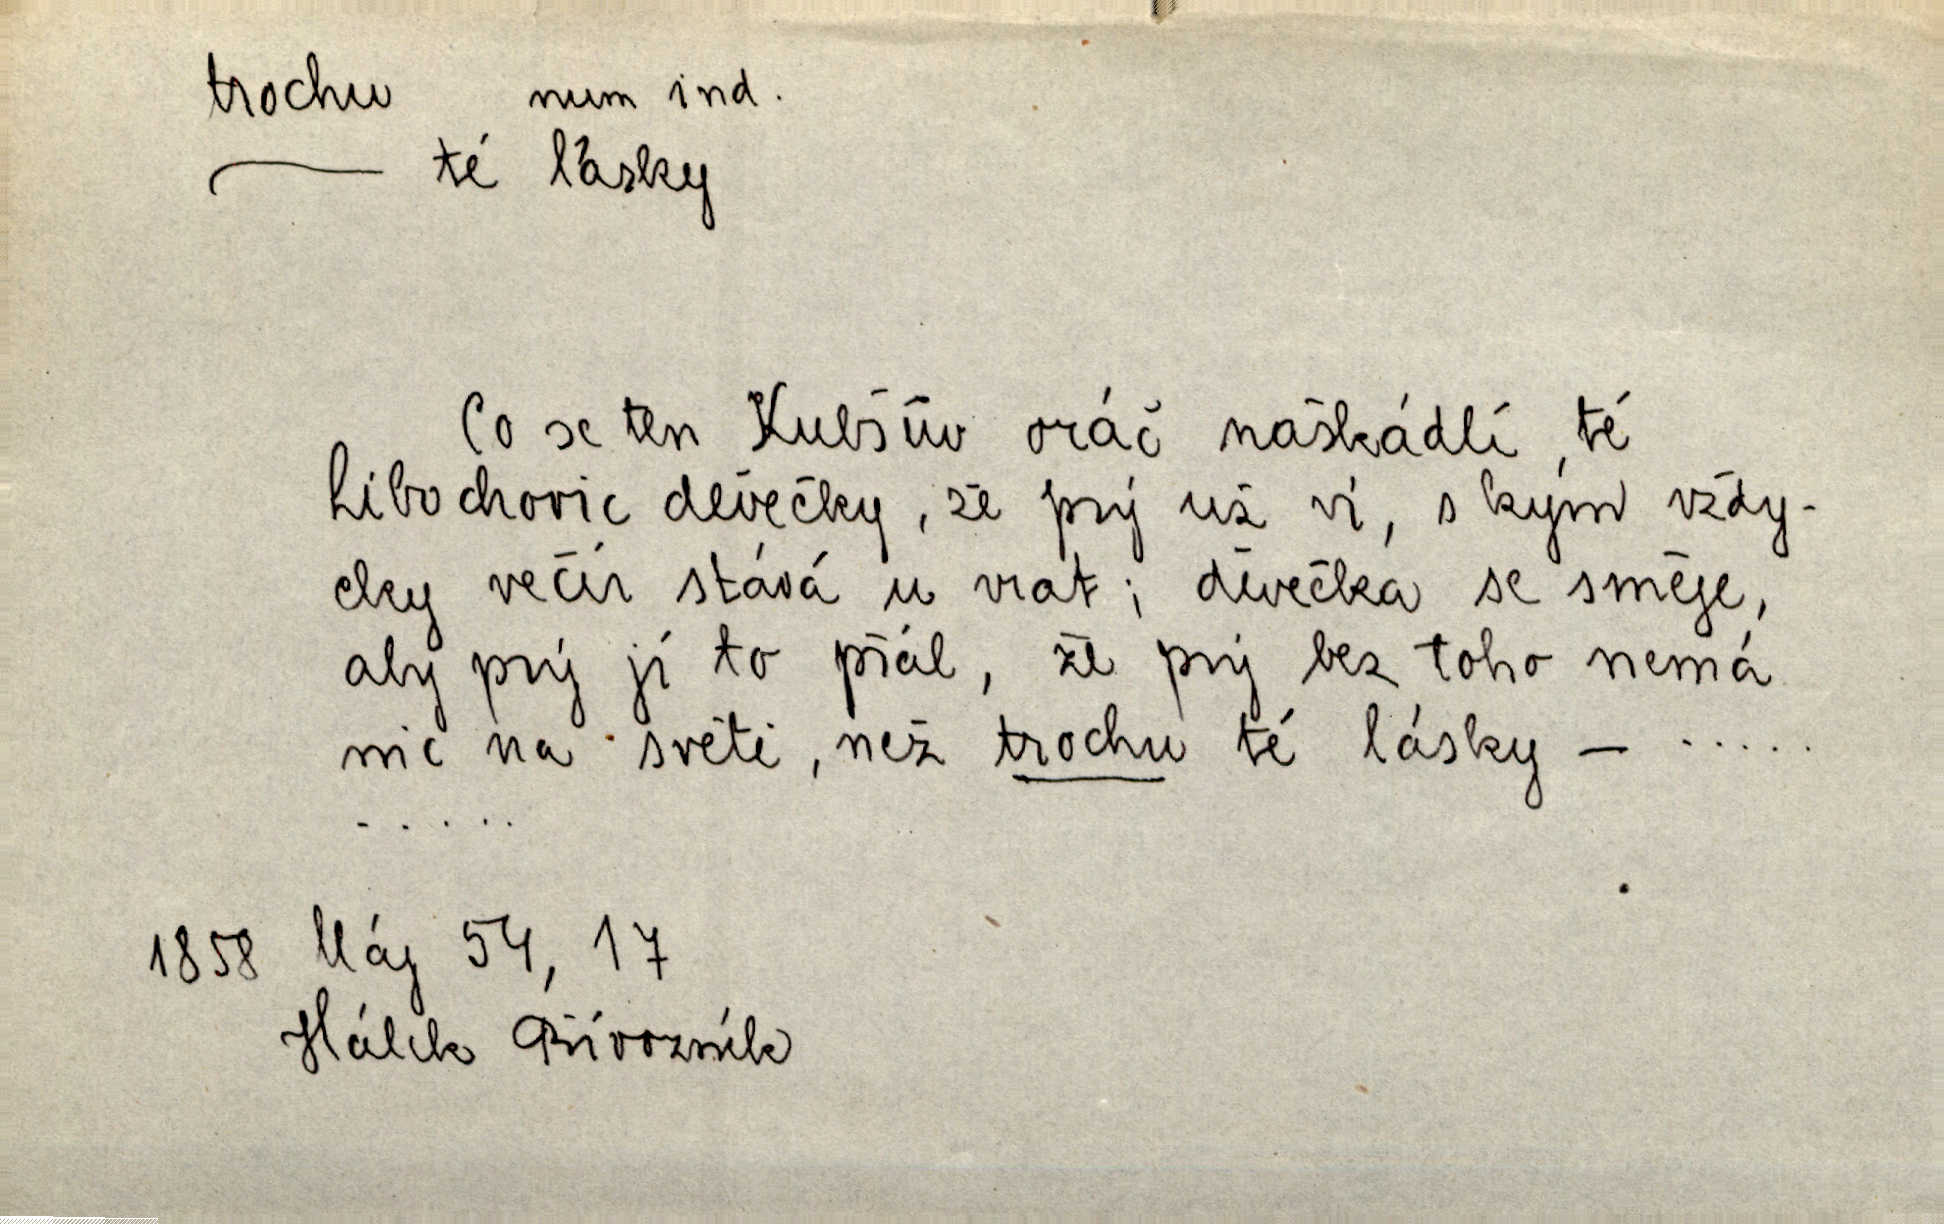 trochu num ind.
té lásky
Co se ten Kubšův oráč naškádlí té
Libochovic děvečky, že prý už ví, s kým vždy-
cky večír stává u vrat; děvečka se směje,
aby prý jí to přál, že prý bez toho nemá
nic na světě, než trochu té lásky – .....
.....
1858 Máj 54, 17
Hálek Přívozník